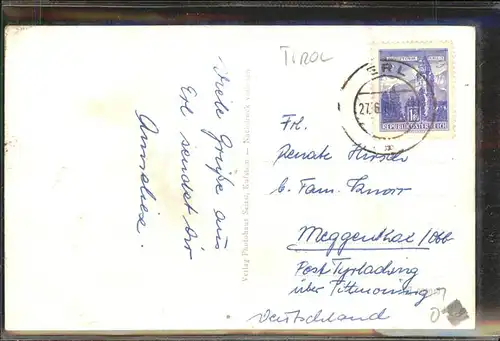 TIROL
Viele Grüße aus
Erl sendet Dir
Annelies.
Verlag Photohaus Karg, Kufstein — Nachdruck verboten
ERL
27.6.
REPUBLIK ÖSTERREICH
Frl.
Renate Hirsch
b. Fam. Knorr
Meggenthal/Obb
Post Tyrlaching
über Tittmoning
Deutschland